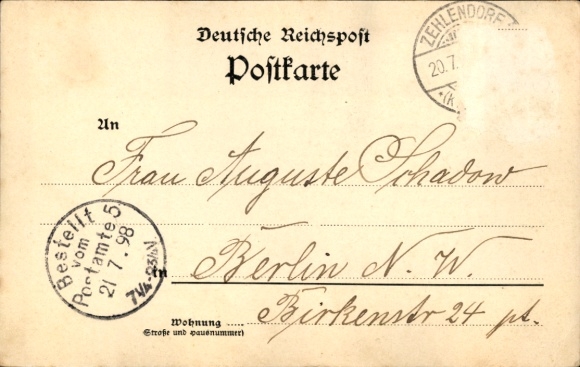 Deutsche Reichspost
Postkarte
ZEHLENDORF
20.7.
An
Frau Auguste Schadow
Bestellt
vom
Postamte 5
21.7.98
7¼-8¾N
in Berlin N. W.
Wohnung Birkenstr 24 pt.
(Straße und Hausnummer)